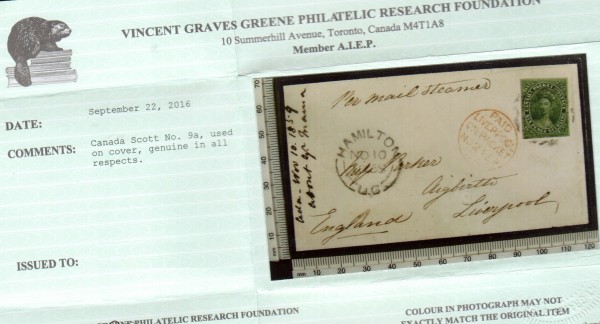 VINCENT GRAVES GREENE PHILATELIC RESEARCH FOUNDATION
10 Summerhill Avenue, Toronto, Canada M4T1A8
Member A.I.E.P.
DATE:
September 22, 2016
COMMENTS:
Canada Scott No. 9a, used
on cover, genuine in all
respects.
ISSUED TO:
Per mail steamer
Nov 10. 1859
about
HAMILTON
NO 10
U.C.
PAID
LIVERPOOL
Miss Parker
Aigburth
Liverpool
England
70
60
50
40
30
20
10
10 20 30 40 50 60 70 80 90 100 110 120 130
PHILATELIC RESEARCH FOUNDATION
COLOUR IN PHOTOGRAPH MAY NOT
EXACTLY MATCH THE ORIGINAL ITEM